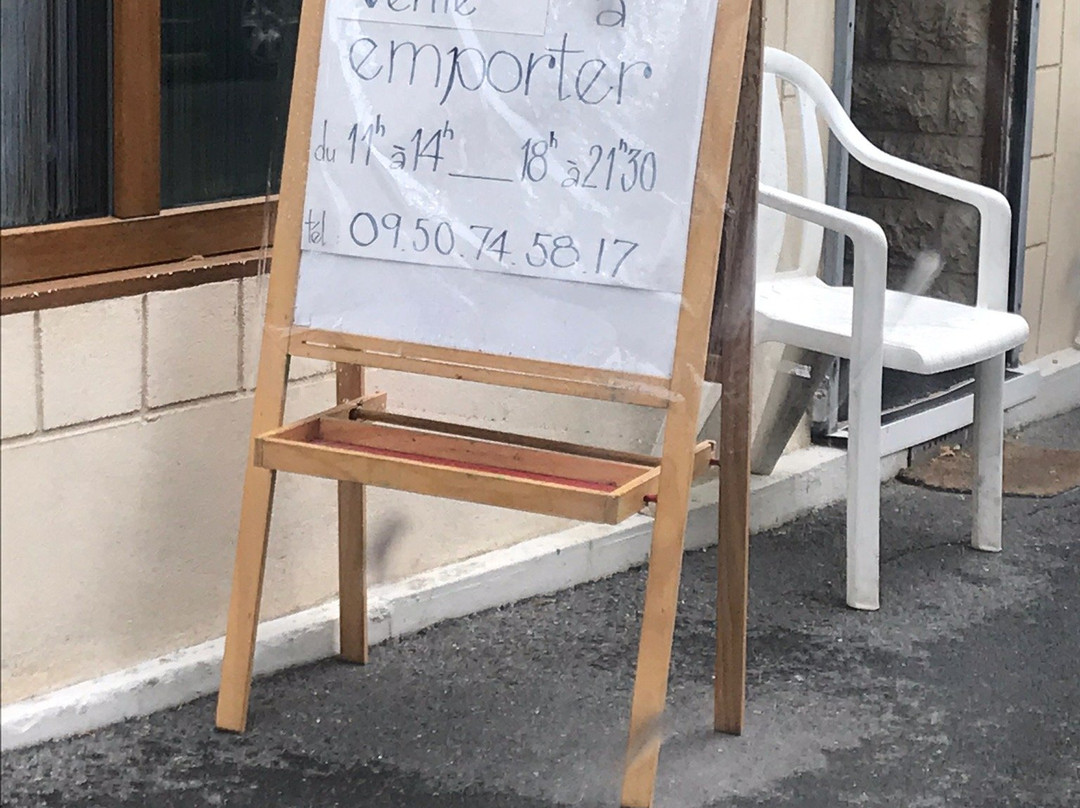 Vente à
emporter
du 11h à 14h __ 18h à 21h30
tél : 09.50.74.58.17